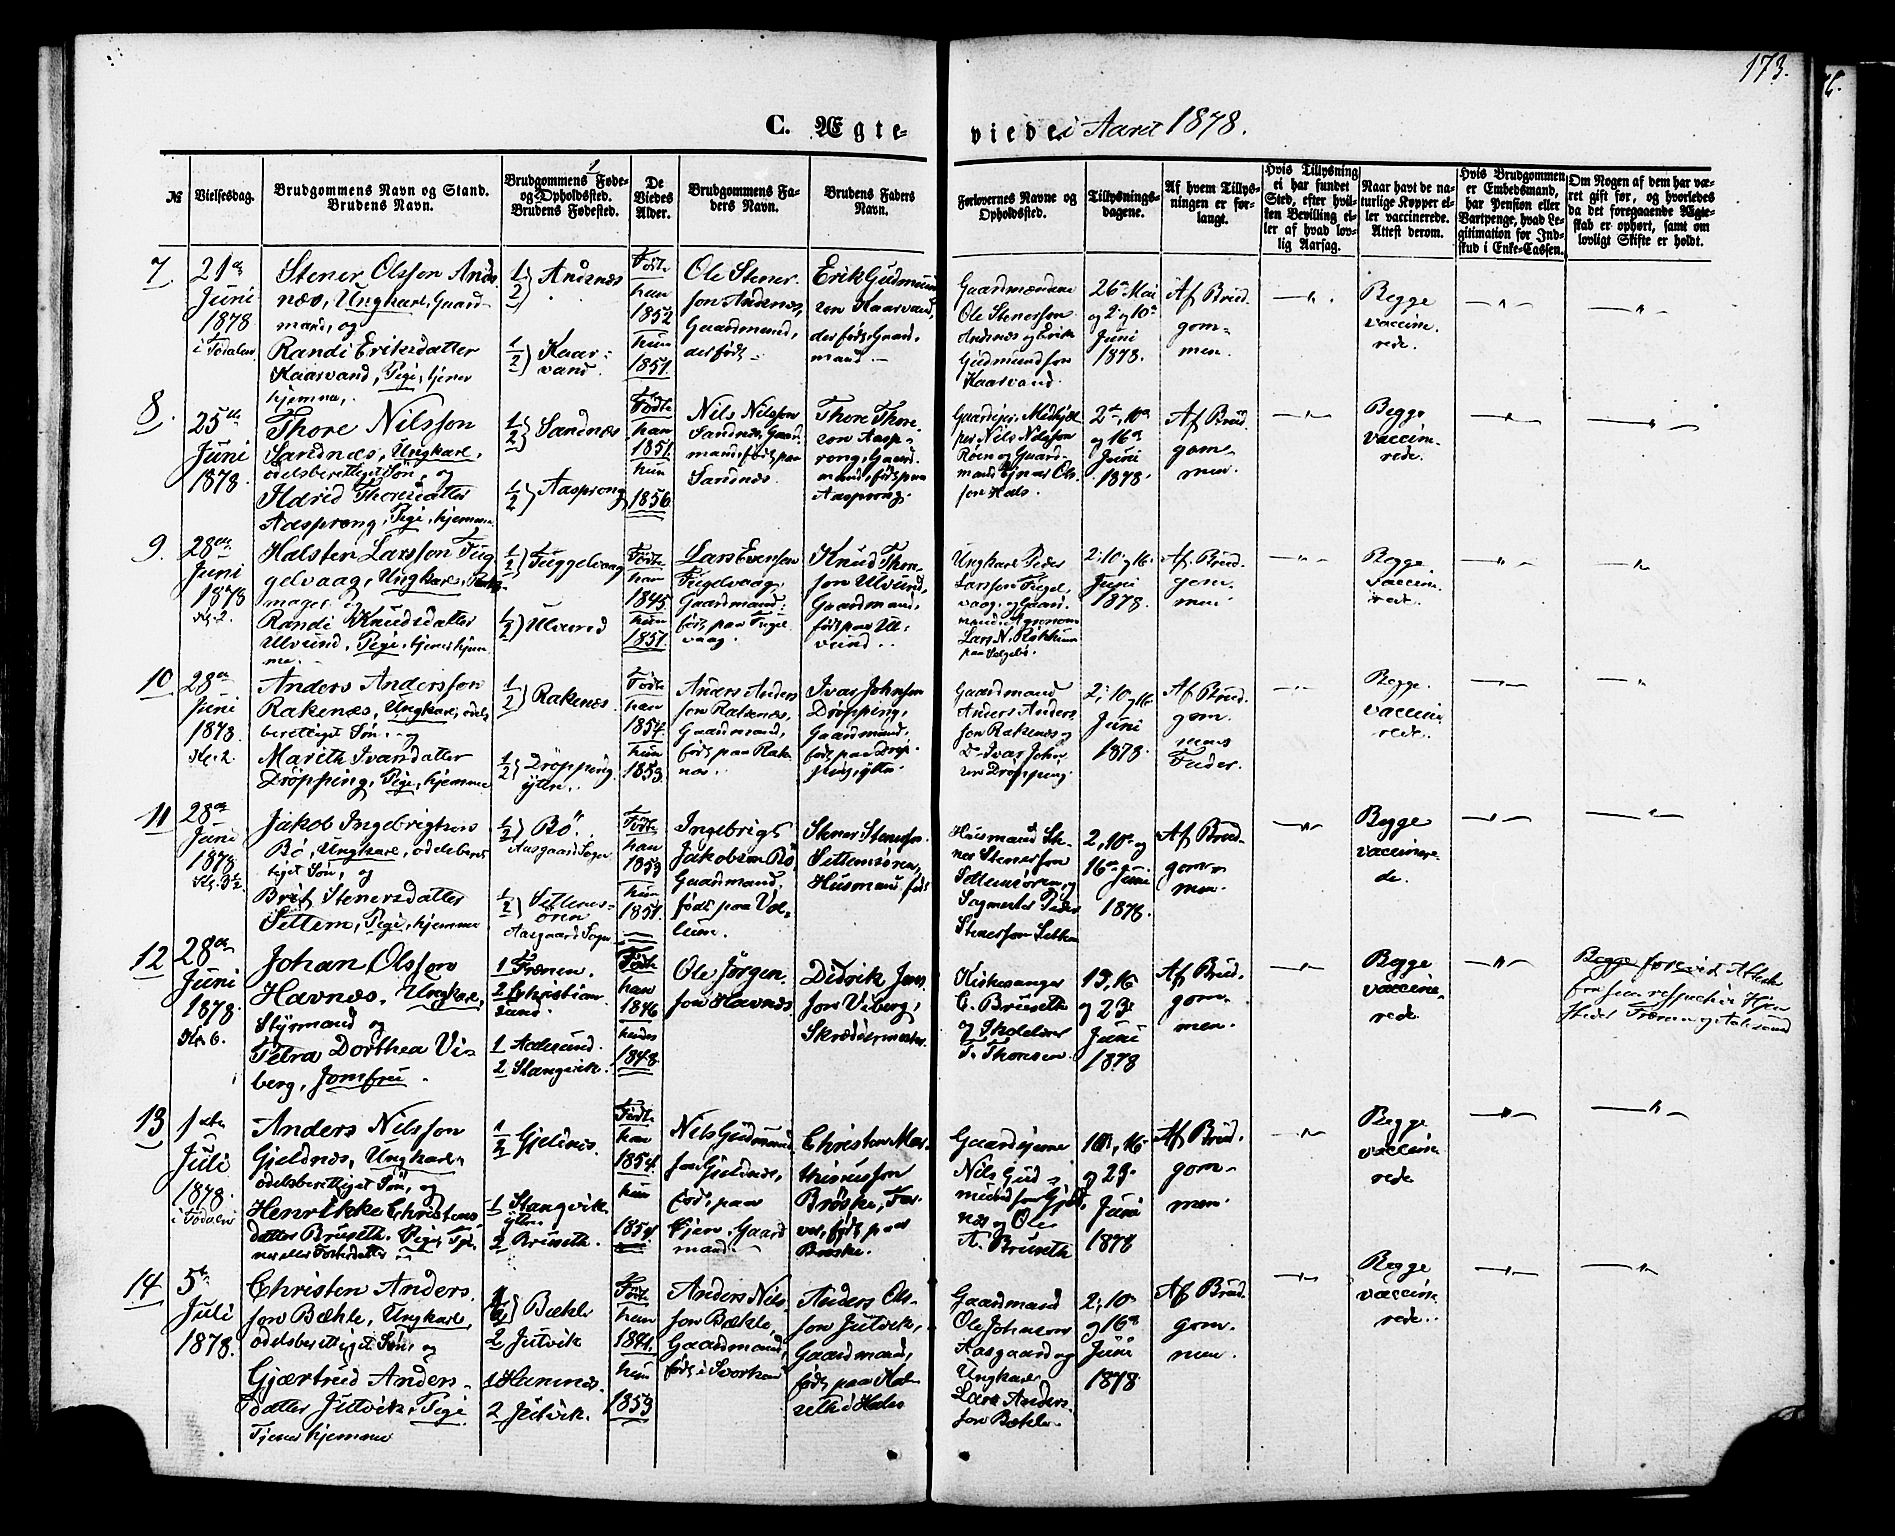 173.
C. Ægte-
viede i Aaret 1878.
№
Vielsesdag.
Brudgommens Navn og Stand.
Brudens Navn.
Brudgommens Føde-
og Opholdssted.
Brudens Fødested.
De
Viedes
Alder.
Brudgommens Fa-
ders Navn.
Brudens Faders
Navn.
Forlovernes Navne og
Opholdssted.
Tillysnings-
dagene.
Af hvem Tillys-
ningen er for-
langt.
Hvis Tillysning
ei har fundet
Sted, efter hvil-
ken Bevilling el-
ler af hvad lov-
lig Aarsag.
Naar havt de na-
turlige Kopper el-
ler vaccinerede.
Attest derom.
Hvis Brudgommen
er Embedsmand,
har Pension eller
Vartpenge, hvad Le-
gitimation for Ind-
skud i Enke-Cassen.
Om Nogen af dem har væ-
ret gift før, og hvorledes
da det foregaaende Ægte-
skab er ophørt, samt om
lovligt Skifte er holdt.
7
21de
Juni
1878
i Todalen
Stener Olsson Ands
næs, Ungkarl, Gaard-
mand, og
Randi Eriksdatter
Kaarvand, Pige, tjener
hjemme,
1/2} Andsnæs
1/2} Kaar-
vand.
Födte
han
1852
hun
1851.
Ole Stener
son Andsnæs,
Gaardmand,
der født
Erik Gudmund
sen Kaarvand,
der født, Gaard
mand.
Gaardmændene
Ole Stenersson
Andsnæs og Erik
Gudmundson
Kaarvand.
26de Mai
og 2 og 10de
Juni
1878.
Af Brud
gom-
men.
Begge
vaccine-
rede.
8.
25de
Juni
1878.
Thore Nilsson
Sandnæs, Ungkarl,
odelsberettiget Søn, og
Marid Thoresdatter
Aasprong, Pige, hjemme
1/2} Sandnæs
1/2} Aasprong
Födte
han
1851.
hun
1856.
Nils Nilsson
Sandnæs, Gaard
mand, født paa
Sandnæs.
Thore Thore
sen Aasp-
rong, Gaard
mand, født paa
Aasprong.
Nils Nilsson
Röen og Gaard-
mand Ejnar Ols
son Hals.
2den, 10de
og 16de
Juni
1878.
Af Brud
gom-
men.
Begge
vaccine-
rede.
9.
28de
Juni
1878
Kl. 2.
Halsten Larsson Fug
gelvaag, Ungkarl,
mager og
Randi Knudsdatter
Ulvund, Pige, tjener hjem
me.
1/2} Fuggelvaag
1/2} Ulvund
Födte
han
1845.
hun
1851.
Lars Evenson
Fugelvaag,
Gaardmand,
født paa Fugel
vaag.
Knud Thor
son Ulvund,
Gaardmand,
født paa Ul-
vund.
Ungkarl Peder
Larsson Fugel
vaag, og Gaard
mand
Lars N. Røkkum
2, 10 og 16
Juni
1878.
Af Brud
gom-
men.
Begge
vaccine-
rede.
10
28de
Juni
1878.
Kl. 2.
Anders Andersson
Rakenæs, Ungkarl, odels
berettiget Søn, og
Marith Ivarsdatter
Dröpping, Pige, hjemme
1/2} Rakenæs
1/2} Dröpping
ytre.
Födte
han
1857.
hun
1853.
Anders Anders
son Rakenæs,
Gaardmand,
født paa Rake
næs.
Ivar Johnson
Dröpping,
Gaardmand,
født paa Dröp
ping, ytre.
Gaardmand
Anders Anders
son Rakenæs og
Do Ivar John
sen Dröpping
2, 10 og 16
Juni
1878.
Af Brud
gom-
mens
Fader.
Begge
vaccine
rede.
11
28de
Juni
1878
Kl. 3½.
Jakob Ingebrigtsen
Bö, Ungkarl, odelsberet
tiget Søn, og
Brit Stenersdatter
Settem, Pige, hjemme
1/2} Bö.
Aasgaard Sogn.
1/2} Settems-
ören
Aasgaard Sogn
Födte
han
1853
hun
1851.
Ingebrigt
Jakobsen Bö,
Gaardmand,
født paa Vol-
len.
Stener Stenerson
Settemsören,
Husmand, født
Husmand Ste-
ner Stenersson
Settemsören, og
Peder
Stenersson Settem
2, 10de og
16de Juni
1878.
Af Brud
gom-
men.
Begge
vaccinere-
de.
12
28de
Juni
1878.
Kl. 6.
Johan Olsson
Havnæs, Ungkarl,
Styrmand og
Petra Dorthea Vi-
berg, Jomfru.
1 Frænen.
2 Christian-
sund.
1 Aalesund.
2 Stangvik.
Födte
han
1846
hun
1848.
Ole Jörgen
son Havnæs
Didrik Jen
son Viberg,
Skrædermester.
Kirkesanger
C. Bruseth
og Skolelærer
T. Thoresen.
13, 16
og 23
Juni
1878
Af Brud
gom-
men.
Begge
vaccine-
rede.
Begge forevist Attest
fra sine respective Hjem
steder Frænen og Aalesund
13
1ste
Juli
1878.
i Todalen
Anders Nilsson
Gjeldnæs, Ungkarl,
odelsberettiget Søn, og
Henrikke Christens-
datter Bruseth, Pige,
1/2 Gjelnæs.
1 Stangvik
ytre.
2 Bruseth.
Födte
han
1854.
hun
1854.
Nils Gudmund
son Gjeldnæs,
født paa
Kjen, Gaard
mand.
Christen
Bröske, Far
ver, født paa
Bröske.
Gaardejerne
Nils Gud-
mundson Gjeld
næs og Ole
A. Bruseth
10, 16
og 23
Juni
1878
Af Brud.
gom-
men.
Begge
vaccine
rede
14
5te
Juli
1878.
Christen Anders
son Bæhle, Ungkarl,
odelsberettiget Søn, og
Gjærtrud Anders-
datter Jutvik, Pige
Tjener hjemme
1} Bæhle
2 Jutvik
1 Hamnes.
2 Jutvik.
Födte
han
1841.
hun
1853
Anders Nils
son Bæhle,
Gaardmand,
født i Svorkmo
Anders Ols-
son Jutvik,
Gaardmand,
født paa Hal
seth i Halse
Gaardmand
Ole Johnsen
Aasgaard og
Ungkarl
Lars Anders
son Bæhle.
2, 10de
og 16de
Juni
1878
Af Brud.
gom-
men.
Begge
vaccine
rede.